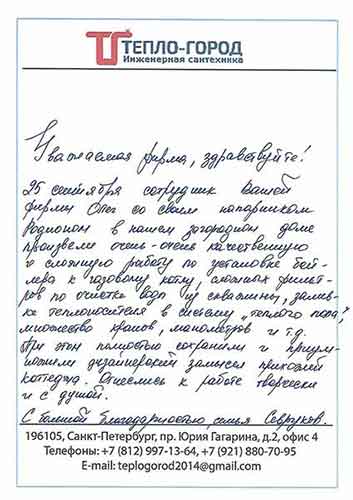 ТЕПЛО-ГОРОД
Инженерная сантехника
Уважаемая фирма, здравствуйте!
25 сентября сотрудник Вашей
фирмы Олег со своим напарником
Родионом в нашем загородном доме
произвели очень-очень качественную
и сложную работу по установке бой-
лера к газовому котлу, сложных фильт-
ров по очистке воды из скважины, залив-
ке теплоносителя в систему „теплого пола",
множество кранов, манометров и т.д.
При этом полностью сохранили и приум-
ножили дизайнерский замысел прихожей
коттеджа. Отнеслись к работе творчески
и с душой.
С большой благодарностью, семья
196105, Санкт-Петербург, пр. Юрия Гагарина, д.2, офис 4
Телефоны: +7 (812) 997-13-64, +7 (921) 880-70-95
E-mail: teplogorod2014@gmail.com